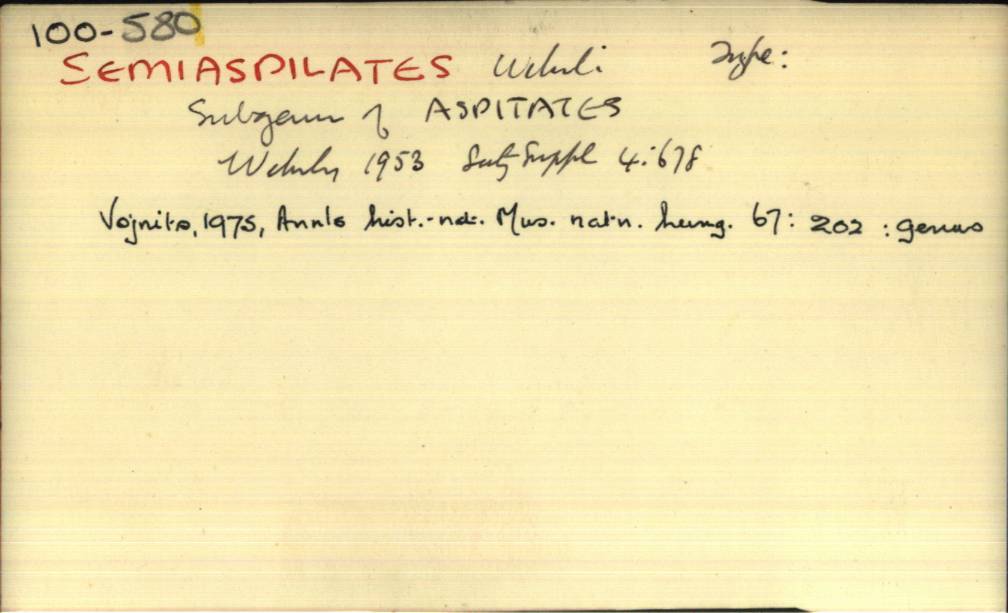 100-580
SEMIASPILATES Wehrli Type:
Subgenus of ASPITATES
Wehrli, 1953 Seitz Suppl 4:678
Vojnits, 1975, Annls hist.-nat. Mus. natn. hung. 67: 202 : genus